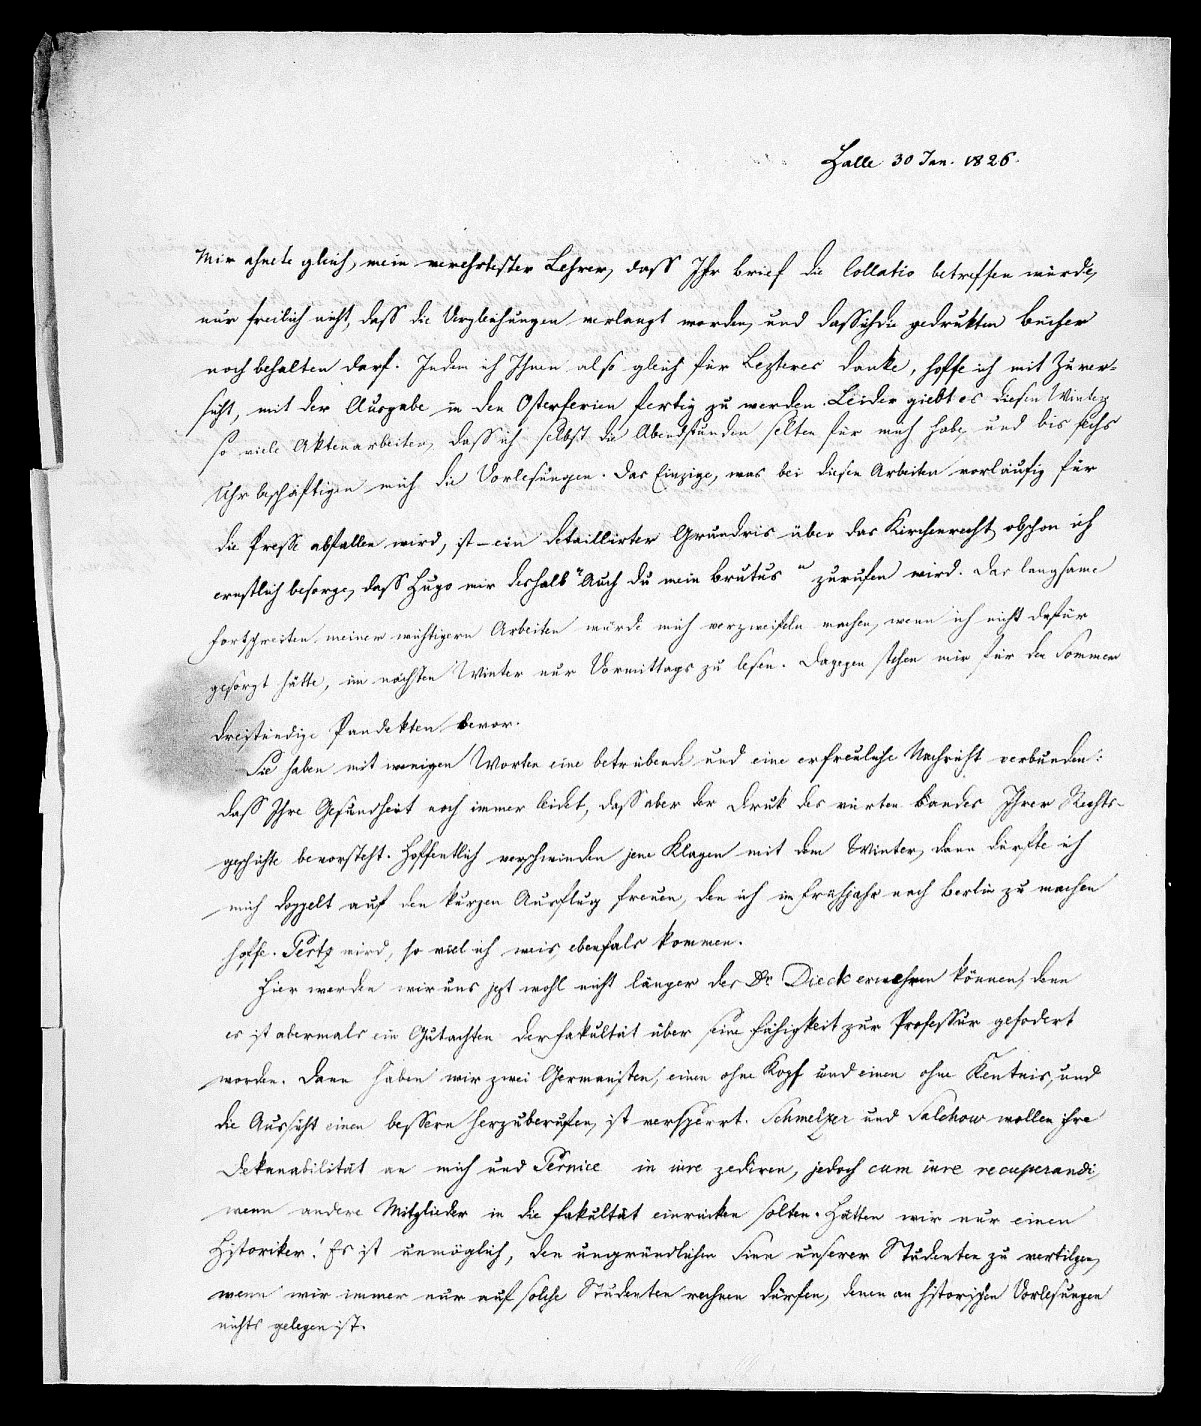 Halle 30 Jan. 1826.
Mir ahnete gleich, mein verehrtester Lehrer, dass Ihr Brief die Collatio betreffen würde,
nur freilich nicht, dass die Vergleichungen verlangt worden, und dass ich die gedrukten Bücher
noch behalten darf. Indem ich Ihnen also gleich für Lezteres danke, hoffe ich mit Zuver-
sicht, mit der Ausgabe in den Osterferien fertig zu werden. Leider giebt es diesen Winter
so viele Aktenarbeiten, dass ich selbst die Abendstunden selten für mich habe, und bis sechs
Uhr beschäftigen mich die Vorlesungen. Das Einzige, was bei diesen Arbeiten vorläufig für
die Presse abfallen wird, ist – ein detaillirter Grundris über das Kirchenrecht, obschon ich
ernstlich besorge, dass Hugo mir deshalb "Auch du mein Brutus" zurufen wird. Das langsame
Fortschreiten meiner wichtigern Arbeiten würde mich verzweifeln machen, wenn ich nicht dafür
gesorgt hätte, im nächsten Winter nur Vormittags zu lesen. Dagegen stehen mir für den Sommer
dreistündige Pandekten bevor.
Sie haben mit wenigen Worten eine betrübende und eine erfreuliche Nachricht verbunden:
dass Ihre Gesundheit noch immer leidet, dass aber der Druk des vierten Bandes Ihrer Rechts-
geschichte bevorsteht. Hoffentlich verschwinden jene Klagen mit dem Winter, dann dürfte ich
mich doppelt auf den kurzen Ausflug freuen, den ich im Frühjahr nach Berlin zu machen
hoffe. Pertz wird, so viel ich weis, ebenfals kommen.
Hier werden wir uns jezt wohl nicht länger des Dr. Dieck erwehren können, denn
es ist abermals ein Gutachten der Fakultät über seine Fähigkeit zur Professur gefodert
worden. Dann haben wir zwei Germanisten, einen ohne Kopf und einen ohne Kentnis, und
die Aussicht einen bessern herzuberufen, ist versperrt. Schmelzer und Salchow wollen ihre
Dekanabilität an mich und Pernice in iure zediren, jedoch cum iure recuperandi,
wenn andere Mitglieder in die Fakultät einrücken solten. Hätten wir nur einen
Historiker! Es ist unmöglich, den ungründlichen Sinn unserer Studenten zu vertilgen,
wenn wir immer nur auf solche Studenten rechnen dürfen, denen an historischen Vorlesungen
nichts gelegen ist.